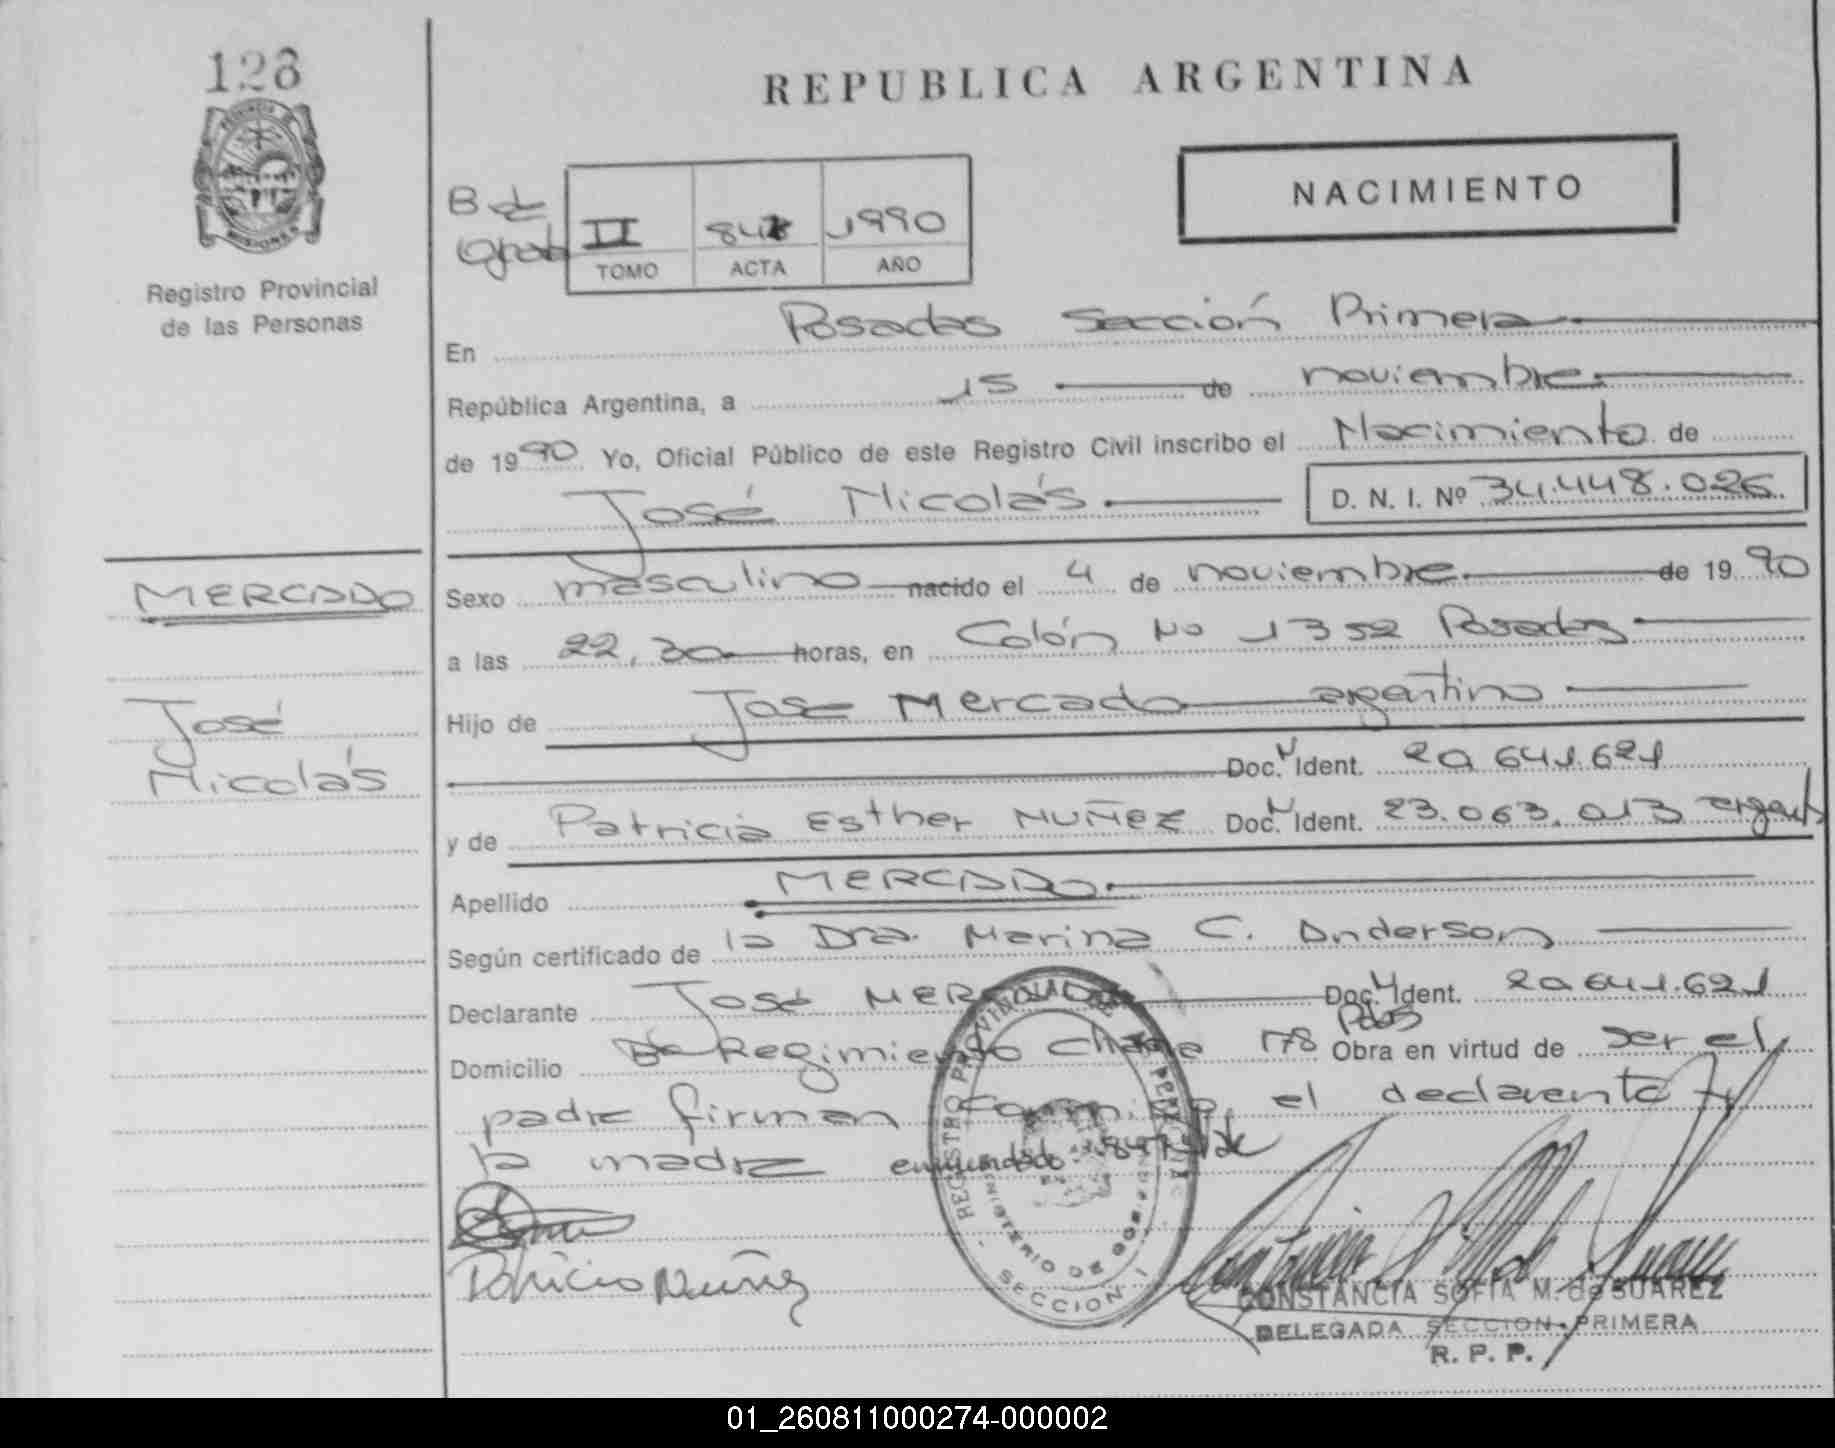 128
REPUBLICA ARGENTINA
PROVINCIA DE MISIONES
Registro Provincial
de las Personas
NACIMIENTO
II 1990
TOMO ACTA AÑO
En Posadas Sección Primera
República Argentina, a 15 de noviembre
de 1990 Yo, Oficial Público de este Registro Civil inscribo el Nacimiento de
José Nicolás D. N. I. Nº 34.448.026
MERCADO
José
Nicolás
Sexo masculino nacido el 4 de noviembre de 1990
a las 22,30 horas, en Colón No 1352 Posadas
Hijo de Jose Mercado argentino
Doc. N Ident. 20 641.621
y de Patricia Esther NUÑEZ Doc. N Ident. 23.063.013
Apellido MERCADO
Según certificado de la Dra. Marina C. Anderson
Declarante José MERCADO Doc. Ident. 20 641.621
Domicilio Regimiento 178 Pdas Obra en virtud de ser el
padre firman conmigo, el declarante y
la madre enmendado
Patricia Nuñez
REGISTRO PROVINCIAL DE LAS PERSONAS
MINISTERIO DE GOBIERNO
SECCION I
CONSTANCIA SOFIA M. de SUAREZ
DELEGADA SECCION PRIMERA
R. P. P.
01_260811000274-000002